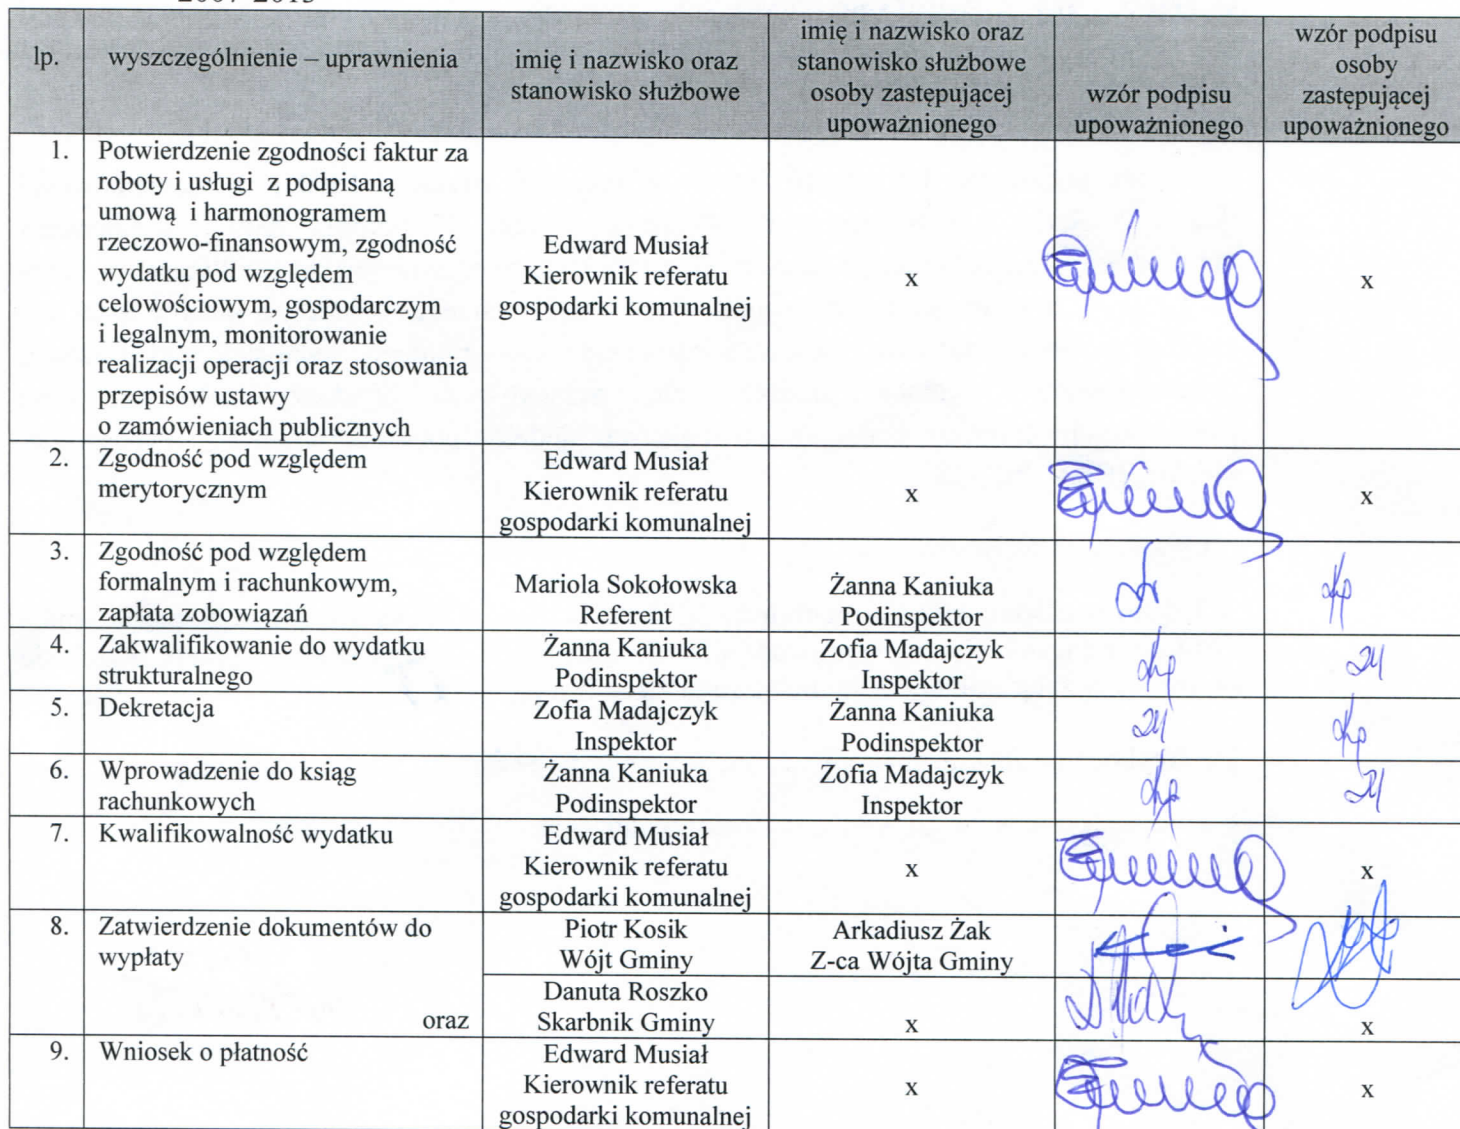 2007-2013
lp.
wyszczególnienie – uprawnienia
imię i nazwisko oraz
stanowisko służbowe
imię i nazwisko oraz
stanowisko służbowe
osoby zastępującej
upoważnionego
wzór podpisu
upoważnionego
wzór podpisu
osoby
zastępującej
upoważnionego
1.
Potwierdzenie zgodności faktur za
roboty i usługi z podpisaną
umową i harmonogramem
rzeczowo-finansowym, zgodność
wydatku pod względem
celowościowym, gospodarczym
i legalnym, monitorowanie
realizacji operacji oraz stosowania
przepisów ustawy
o zamówieniach publicznych
Edward Musiał
Kierownik referatu
gospodarki komunalnej
x
x
2.
Zgodność pod względem
merytorycznym
Edward Musiał
Kierownik referatu
gospodarki komunalnej
x
x
3.
Zgodność pod względem
formalnym i rachunkowym,
zapłata zobowiązań
Mariola Sokołowska
Referent
Żanna Kaniuka
Podinspektor
4.
Zakwalifikowanie do wydatku
strukturalnego
Żanna Kaniuka
Podinspektor
Zofia Madajczyk
Inspektor
5.
Dekretacja
Zofia Madajczyk
Inspektor
Żanna Kaniuka
Podinspektor
6.
Wprowadzenie do ksiąg
rachunkowych
Żanna Kaniuka
Podinspektor
Zofia Madajczyk
Inspektor
7.
Kwalifikowalność wydatku
Edward Musiał
Kierownik referatu
gospodarki komunalnej
x
x
8.
Zatwierdzenie dokumentów do
wypłaty
oraz
Piotr Kosik
Wójt Gminy
Arkadiusz Żak
Z-ca Wójta Gminy
Danuta Roszko
Skarbnik Gminy
x
x
9.
Wniosek o płatność
Edward Musiał
Kierownik referatu
gospodarki komunalnej
x
x